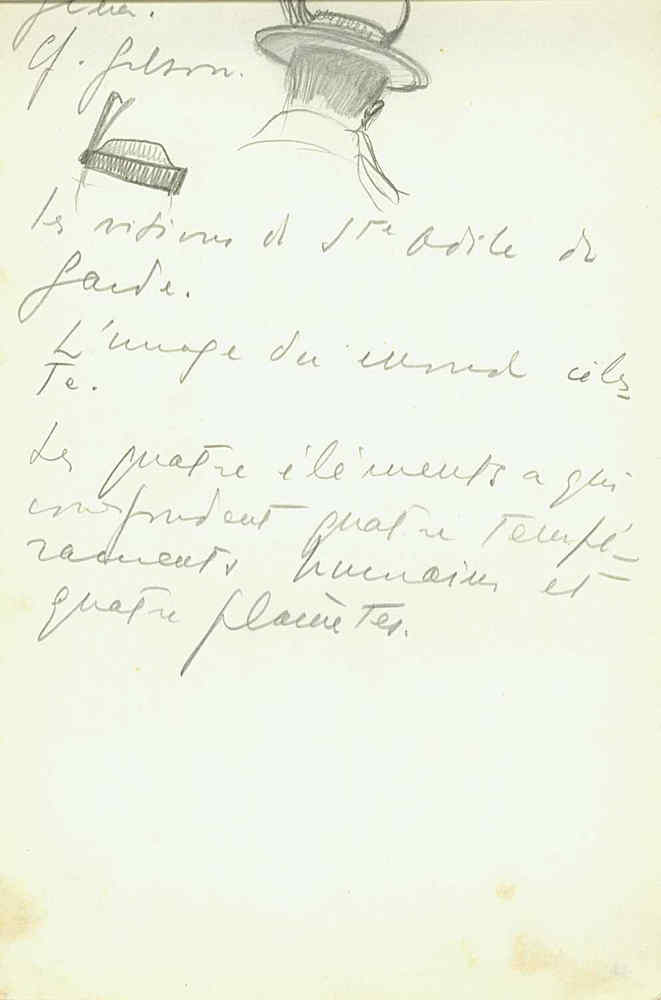 Cf. Gilson.
Les visions de Ste Odile de
Garde.
L'image du monde céles-
te.
Les quatre éléments a qui
correspondent quatre tempé-
raments humains et
quatre planètes.